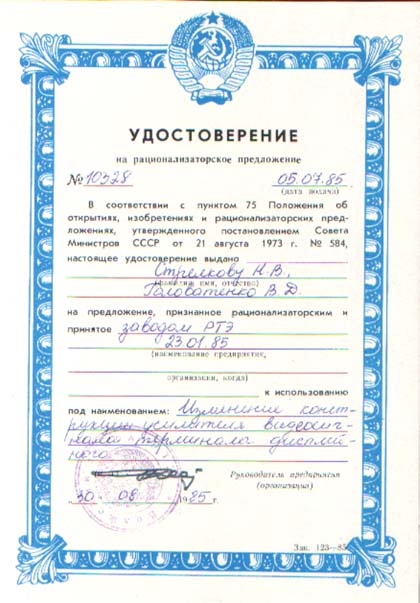 УДОСТОВЕРЕНИЕ
на рационализаторское предложение
№ 10328 05.07.85
(дата подачи)
В соответствии с пунктом 75 Положения об
открытиях, изобретениях и рационализаторских пред-
ложениях, утвержденного постановлением Совета
Министров СССР от 21 августа 1973 г. № 584,
настоящее удостоверение выдано
Стрелкову Н.В.,
(фамилия, имя, отчество)
Головатенко В.Д.
на предложение, признанное рационализаторским и
принятое заводом РТЭ
23.01.85
(наименование предприятия,
организации, когда)
к использованию
под наименованием: Изменение конст-
рукции усилителя видеосиг-
нала терминала дисплей-
ного
Руководитель предприятия
(организации)
„30 08 1985 г.
Зак. 123—85